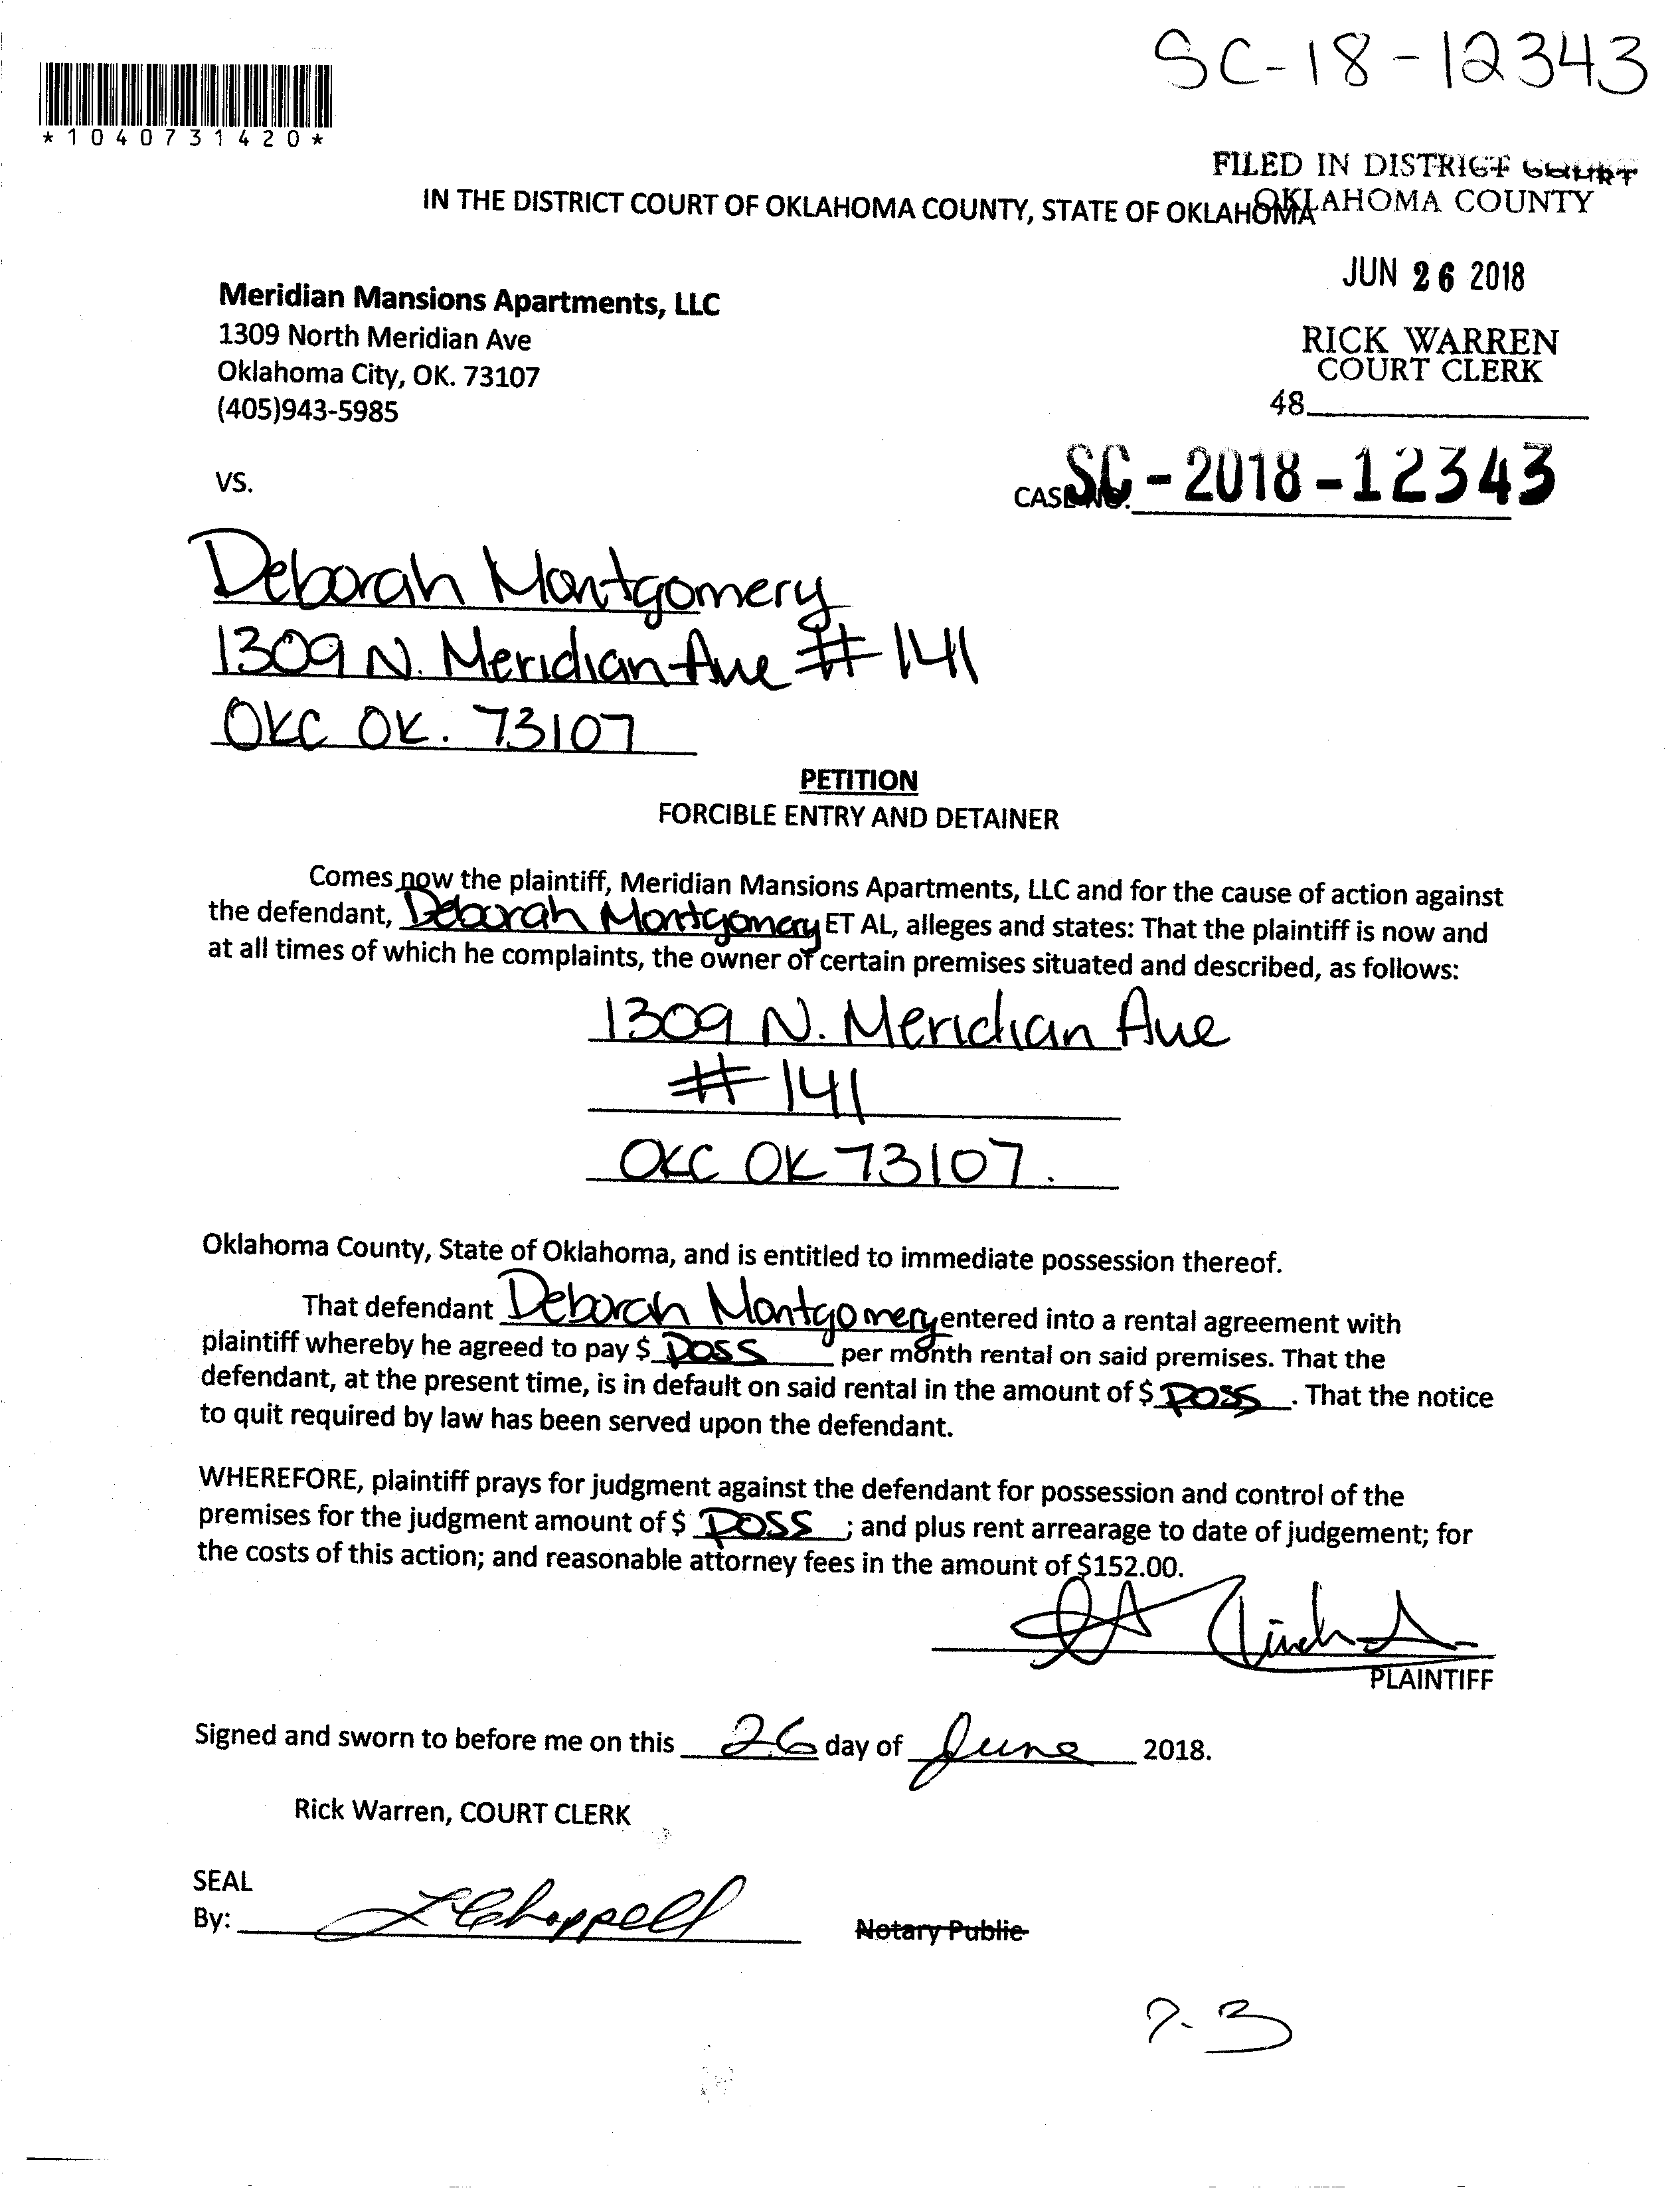 SC-18-12343
*1040731420*
FILED IN DISTRICT COURT
OKLAHOMA COUNTY
IN THE DISTRICT COURT OF OKLAHOMA COUNTY, STATE OF OKLAHOMA
JUN 26 2018
Meridian Mansions Apartments, LLC
1309 North Meridian Ave
Oklahoma City, OK. 73107
(405)943-5985
RICK WARREN
COURT CLERK
48
VS.
CASE NO. SC-2018-12343
Deborah Montgomery
1309 N. Meridian Ave #141
OKC OK. 73107
PETITION
FORCIBLE ENTRY AND DETAINER
Comes now the plaintiff, Meridian Mansions Apartments, LLC and for the cause of action against
the defendant, Deborah Montgomery ET AL, alleges and states: That the plaintiff is now and
at all times of which he complaints, the owner of certain premises situated and described, as follows:
1309 N. Meridian Ave
#141
OKC OK 73107.
Oklahoma County, State of Oklahoma, and is entitled to immediate possession thereof.
That defendant Deborah Montgomery entered into a rental agreement with
plaintiff whereby he agreed to pay $ POSS per month rental on said premises. That the
defendant, at the present time, is in default on said rental in the amount of $ POSS. That the notice
to quit required by law has been served upon the defendant.
WHEREFORE, plaintiff prays for judgment against the defendant for possession and control of the
premises for the judgment amount of $ POSS; and plus rent arrearage to date of judgement; for
the costs of this action; and reasonable attorney fees in the amount of $152.00.
PLAINTIFF
Signed and sworn to before me on this 26 day of June 2018.
Rick Warren, COURT CLERK
SEAL
By: L Chappell Notary Public
7-3